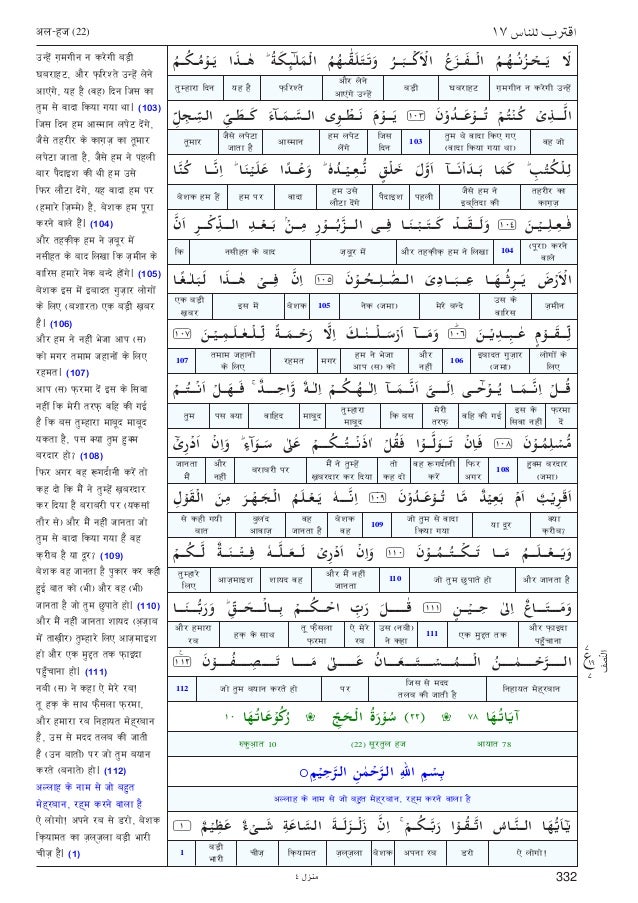 अल-हज (22)
اقترب للناس ١٧
उन्हें ग़मगीन न करेगी बड़ी
घबराहट, और फ़रिश्ते उन्हें लेने
आएंगे, यह है (वह) दिन जिस का
तुम से वादा किया गया था। (103)
जिस दिन हम आस्मान लपेट देंगे,
जैसे तहरीर के काग़ज़ का तूमार
लपेटा जाता है, जैसे हम ने पहली
बार पैदाइश की थी हम उसे
फिर लौटा देंगे, यह वादा हम पर
(हमारे ज़िम्मे) है, बेशक हम पूरा
करने वाले हैं। (104)
और तहक़ीक़ हम ने ज़बूर में
नसीहत के बाद लिखा कि ज़मीन के
वारिस हमारे नेक बन्दे होंगे। (105)
बेशक इस में इबादत गुज़ार लोगों
के लिए (बशारत) एक बड़ी ख़बर
है। (106)
और हम ने नहीं भेजा आप (स)
को मगर तमाम जहानों के लिए
रहमत। (107)
आप (स) फ़रमा दें इस के सिवा
नहीं कि मेरी तरफ़ वहि की गई
है कि बस तुम्हारा माबूद माबूद
यकता है, पस क्या तुम हुक्म
बरदार हो? (108)
फिर अगर वह रूगर्दानी करें तो
कह दो कि मैं ने तुम्हें ख़बरदार
कर दिया है बराबरी पर (यकसां
तौर से) और मैं नहीं जानता जो
तुम से वादा किया गया है वह
क़रीब है या दूर? (109)
बेशक वह जानता है पुकार कर कही
हुई बात को (भी) और वह (भी)
जानता है जो तुम छुपाते हो। (110)
और मैं नहीं जानता शायद (अज़ाब
में ताख़ीर) तुम्हारे लिए आज़माइश
हो और एक मुद्दत तक फ़ाइदा
पहुँचाना हो। (111)
नबी (स) ने कहा ऐ मेरे रब!
तू हक़ के साथ फ़ैसला फ़रमा,
और हमारा रब निहायत मेह्रबान
है, उस से मदद तलब की जाती
है (उन बातों) पर जो तुम बयान
करते (बनाते) हो। (112)
अल्लाह के नाम से जो बहुत
मेह्रबान, रह्म करने वाला है
ऐ लोगो! अपने रब से डरो, बेशक
क़ियामत का ज़ल्ज़ला बड़ी भारी
चीज़ है। (1)
لَا يَحْزُنُهُمُ الْفَزَعُ الْأَكْبَرُ وَتَتَلَقّٰىهُمُ الْمَلٰٓئِكَةُ ۗ هٰذَا يَوْمُكُمُ
तुम्हारा दिन यह है फ़रिश्ते और लेने आएंगे उन्हें बड़ी घबराहट ग़मगीन न करेगी उन्हें
الَّذِيْ كُنْتُمْ تُوْعَدُوْنَ ١٠٣ يَوْمَ نَطْوِى السَّمَآءَ كَطَيِّ السِّجِلِّ
तूमार जैसे लपेटा जाता है आस्मान हम लपेट लेंगे जिस दिन 103 तुम थे वादा किए गए (वादा किया गया था) वह जो
لِلْكُتُبِ ۗ كَمَا بَدَاْنَآ اَوَّلَ خَلْقٍ نُّعِيْدُهٗ ۗ وَعْدًا عَلَيْنَا ۗ اِنَّا كُنَّا
बेशक हम हैं हम पर वादा हम उसे लौटा देंगे पैदाइश पहली जैसे हम ने इब्तिदा की तहरीर का काग़ज़
فٰعِلِيْنَ ١٠٤ وَلَقَدْ كَتَبْنَا فِى الزَّبُوْرِ مِنْۢ بَعْدِ الذِّكْرِ اَنَّ
कि नसीहत के बाद ज़बूर में और तहक़ीक़ हम ने लिखा 104 (पूरा) करने वाले
الْاَرْضَ يَرِثُهَا عِبَادِىَ الصّٰلِحُوْنَ ١٠٥ اِنَّ فِيْ هٰذَا لَبَلٰغًا
एक बड़ी ख़बर इस में बेशक 105 नेक (जमा) मेरे बन्दे उस के वारिस ज़मीन
لِّقَوْمٍ عٰبِدِيْنَ ١٠٦ وَمَآ اَرْسَلْنٰكَ اِلَّا رَحْمَةً لِّلْعٰلَمِيْنَ ١٠٧
107 तमाम जहानों के लिए रहमत मगर हम ने भेजा आप (स) को और नहीं 106 इबादत गुज़ार (जमा) लोगों के लिए
قُلْ اِنَّمَا يُوْحٰٓى اِلَيَّ اَنَّمَآ اِلٰهُكُمْ اِلٰهٌ وَّاحِدٌ ۚ فَهَلْ اَنْتُمْ
तुम पस क्या वाहिद माबूद तुम्हारा माबूद कि बस मेरी तरफ़ वहि की गई इस के सिवा नहीं फ़रमा दें
مُّسْلِمُوْنَ ١٠٨ فَاِنْ تَوَلَّوْا فَقُلْ اٰذَنْتُكُمْ عَلٰى سَوَآءٍ ۗ وَاِنْ اَدْرِيْٓ
जानता मैं और नहीं बराबरी पर मैं ने तुम्हें ख़बरदार कर दिया तो कह दो वह रूगर्दानी करें फिर अगर 108 हुक्म बरदार (जमा)
اَقَرِيْبٌ اَمْ بَعِيْدٌ مَّا تُوْعَدُوْنَ ١٠٩ اِنَّهٗ يَعْلَمُ الْجَهْرَ مِنَ الْقَوْلِ
से कही गयी बात बुलंद आवाज़ वह जानता है बेशक वह 109 जो तुम से वादा किया गया या दूर क्या क़रीब?
وَيَعْلَمُ مَا تَكْتُمُوْنَ ١١٠ وَاِنْ اَدْرِيْ لَعَلَّهٗ فِتْنَةٌ لَّكُمْ
तुम्हारे लिए आज़माइश शायद वह और मैं नहीं जानता 110 जो तुम छुपाते हो और जानता है
وَمَتَاعٌ اِلٰى حِيْنٍ ١١١ قٰلَ رَبِّ احْكُمْ بِالْحَقِّ ۗ وَرَبُّنَا
और हमारा रब हक़ के साथ तू फ़ैसला फ़रमा ऐ मेरे रब उस (नबी) ने कहा 111 एक मुद्दत तक और फ़ाइदा पहुँचाना
الرَّحْمٰنُ الْمُسْتَعَانُ عَلٰى مَا تَصِفُوْنَ ١١٢
112 जो तुम बयान करते हो पर जिस से मदद तलब की जाती है निहायत मेह्रबान
اٰيَاتُهَا ٧٨ (٢٢) سُوْرَةُ الْحَجِّ رُكُوْعَاتُهَا ١٠
रुकुआत 10 (22) सूरतुल हज आयात 78
بِسْمِ اللّٰهِ الرَّحْمٰنِ الرَّحِيْمِ
अल्लाह के नाम से जो बहुत मेह्रबान, रह्म करने वाला है
يٰٓاَيُّهَا النَّاسُ اتَّقُوْا رَبَّكُمْ ۚ اِنَّ زَلْزَلَةَ السَّاعَةِ شَيْءٌ عَظِيْمٌ ١
1 बड़ी भारी चीज़ क़ियामत ज़ल्ज़ला बेशक अपना रब डरो ऐ लोगो!
منزل ٤
332